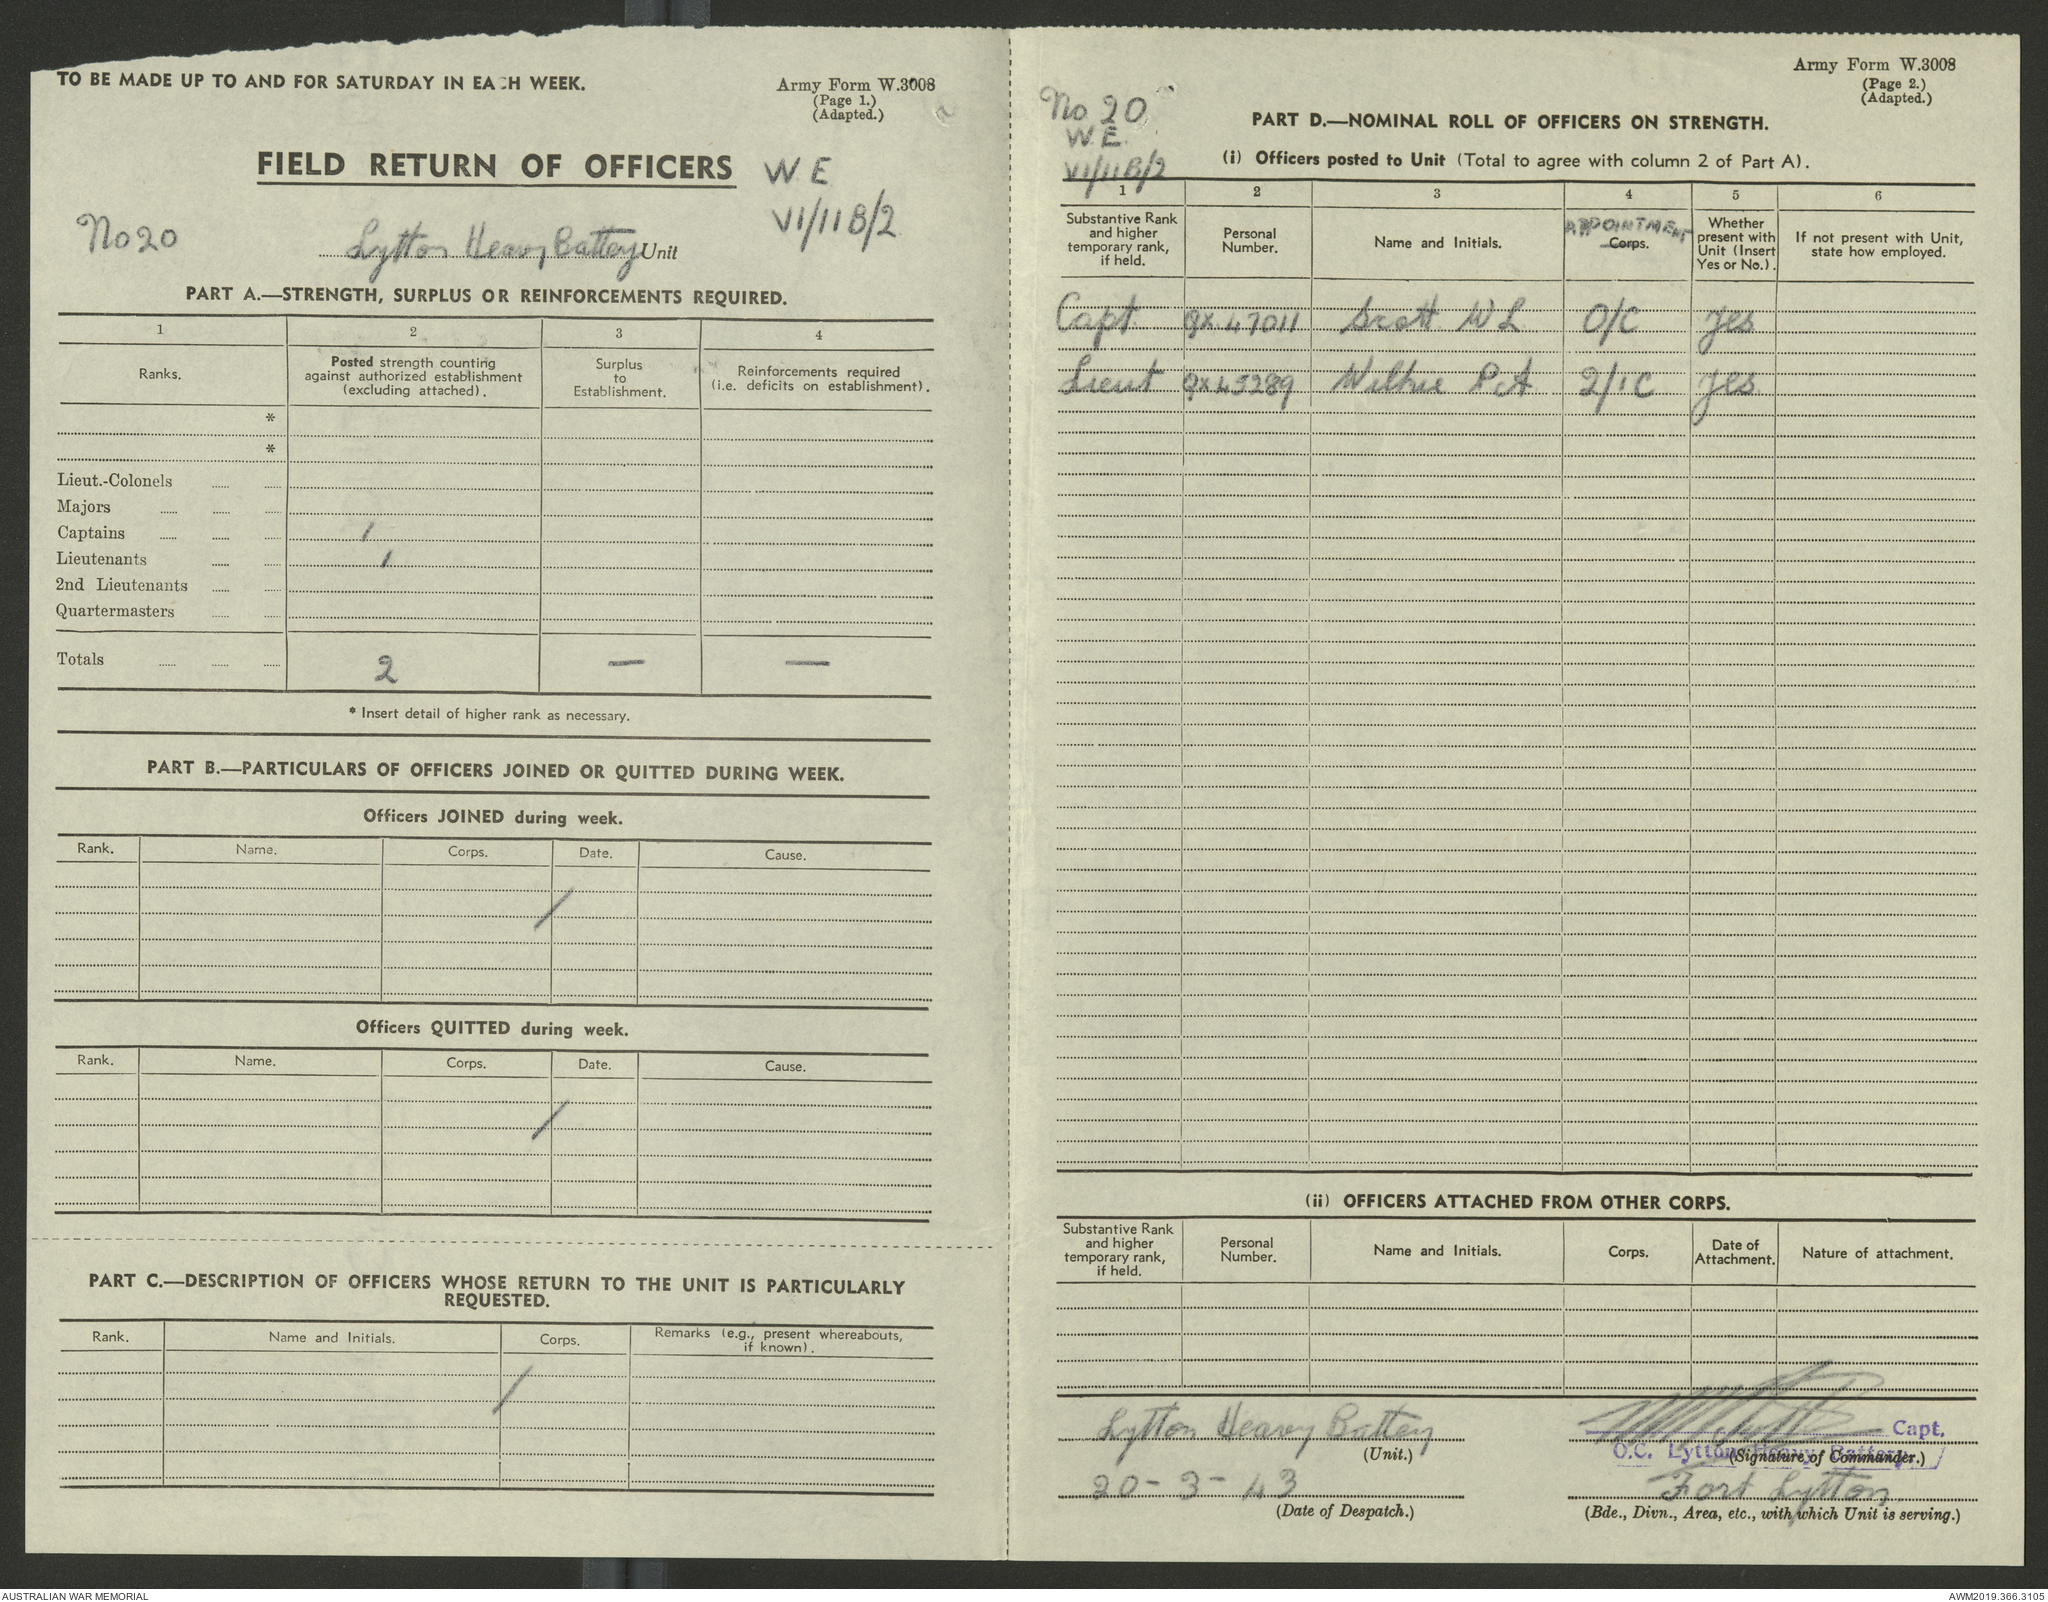 TO BE MADE UP TO AND FOR SATURDAY IN EACH WEEK.
Army Form W.3008
(Page 1.)
(Adapted.)
FIELD RETURN OF OFFICERS
W E
VI/11B/2
No 20
Lytton Heavy Battery Unit
PART A.—STRENGTH, SURPLUS OR REINFORCEMENTS REQUIRED.
1 2 3 4
Ranks. Posted strength counting against authorized establishment (excluding attached). Surplus to Establishment. Reinforcements required (i.e. deficits on establishment).
*
*
Lieut.-Colonels
Majors
Captains 1
Lieutenants 1
2nd Lieutenants
Quartermasters
Totals 2 — —
* Insert detail of higher rank as necessary.
PART B.—PARTICULARS OF OFFICERS JOINED OR QUITTED DURING WEEK.
Officers JOINED during week.
Rank. Name. Corps. Date. Cause.
/
Officers QUITTED during week.
Rank. Name. Corps. Date. Cause.
/
PART C.—DESCRIPTION OF OFFICERS WHOSE RETURN TO THE UNIT IS PARTICULARLY
REQUESTED.
Rank. Name and Initials. Corps. Remarks (e.g., present whereabouts, if known).
/
Army Form W.3008
(Page 2.)
(Adapted.)
No 20
W.E.
VI/11B/2
PART D.—NOMINAL ROLL OF OFFICERS ON STRENGTH.
(i) Officers posted to Unit (Total to agree with column 2 of Part A).
1 2 3 4 5 6
Substantive Rank and higher temporary rank, if held. Personal Number. Name and Initials. APPOINTMENT Corps. Whether present with Unit (Insert Yes or No.). If not present with Unit, state how employed.
Capt QX 47011 Scott W L O/C yes
Lieut QX 45289 Wilkie P.A 2/IC yes
(ii) OFFICERS ATTACHED FROM OTHER CORPS.
Substantive Rank and higher temporary rank, if held. Personal Number. Name and Initials. Corps. Date of Attachment. Nature of attachment.
Lytton Heavy Battery
(Unit.)
20-3-43
(Date of Despatch.)
Capt.
O.C. Lytton Heavy Battery
(Signature of Commander.)
Fort Lytton
(Bde., Divn., Area, etc., with which Unit is serving.)
AUSTRALIAN WAR MEMORIAL
AWM2019.366.3105